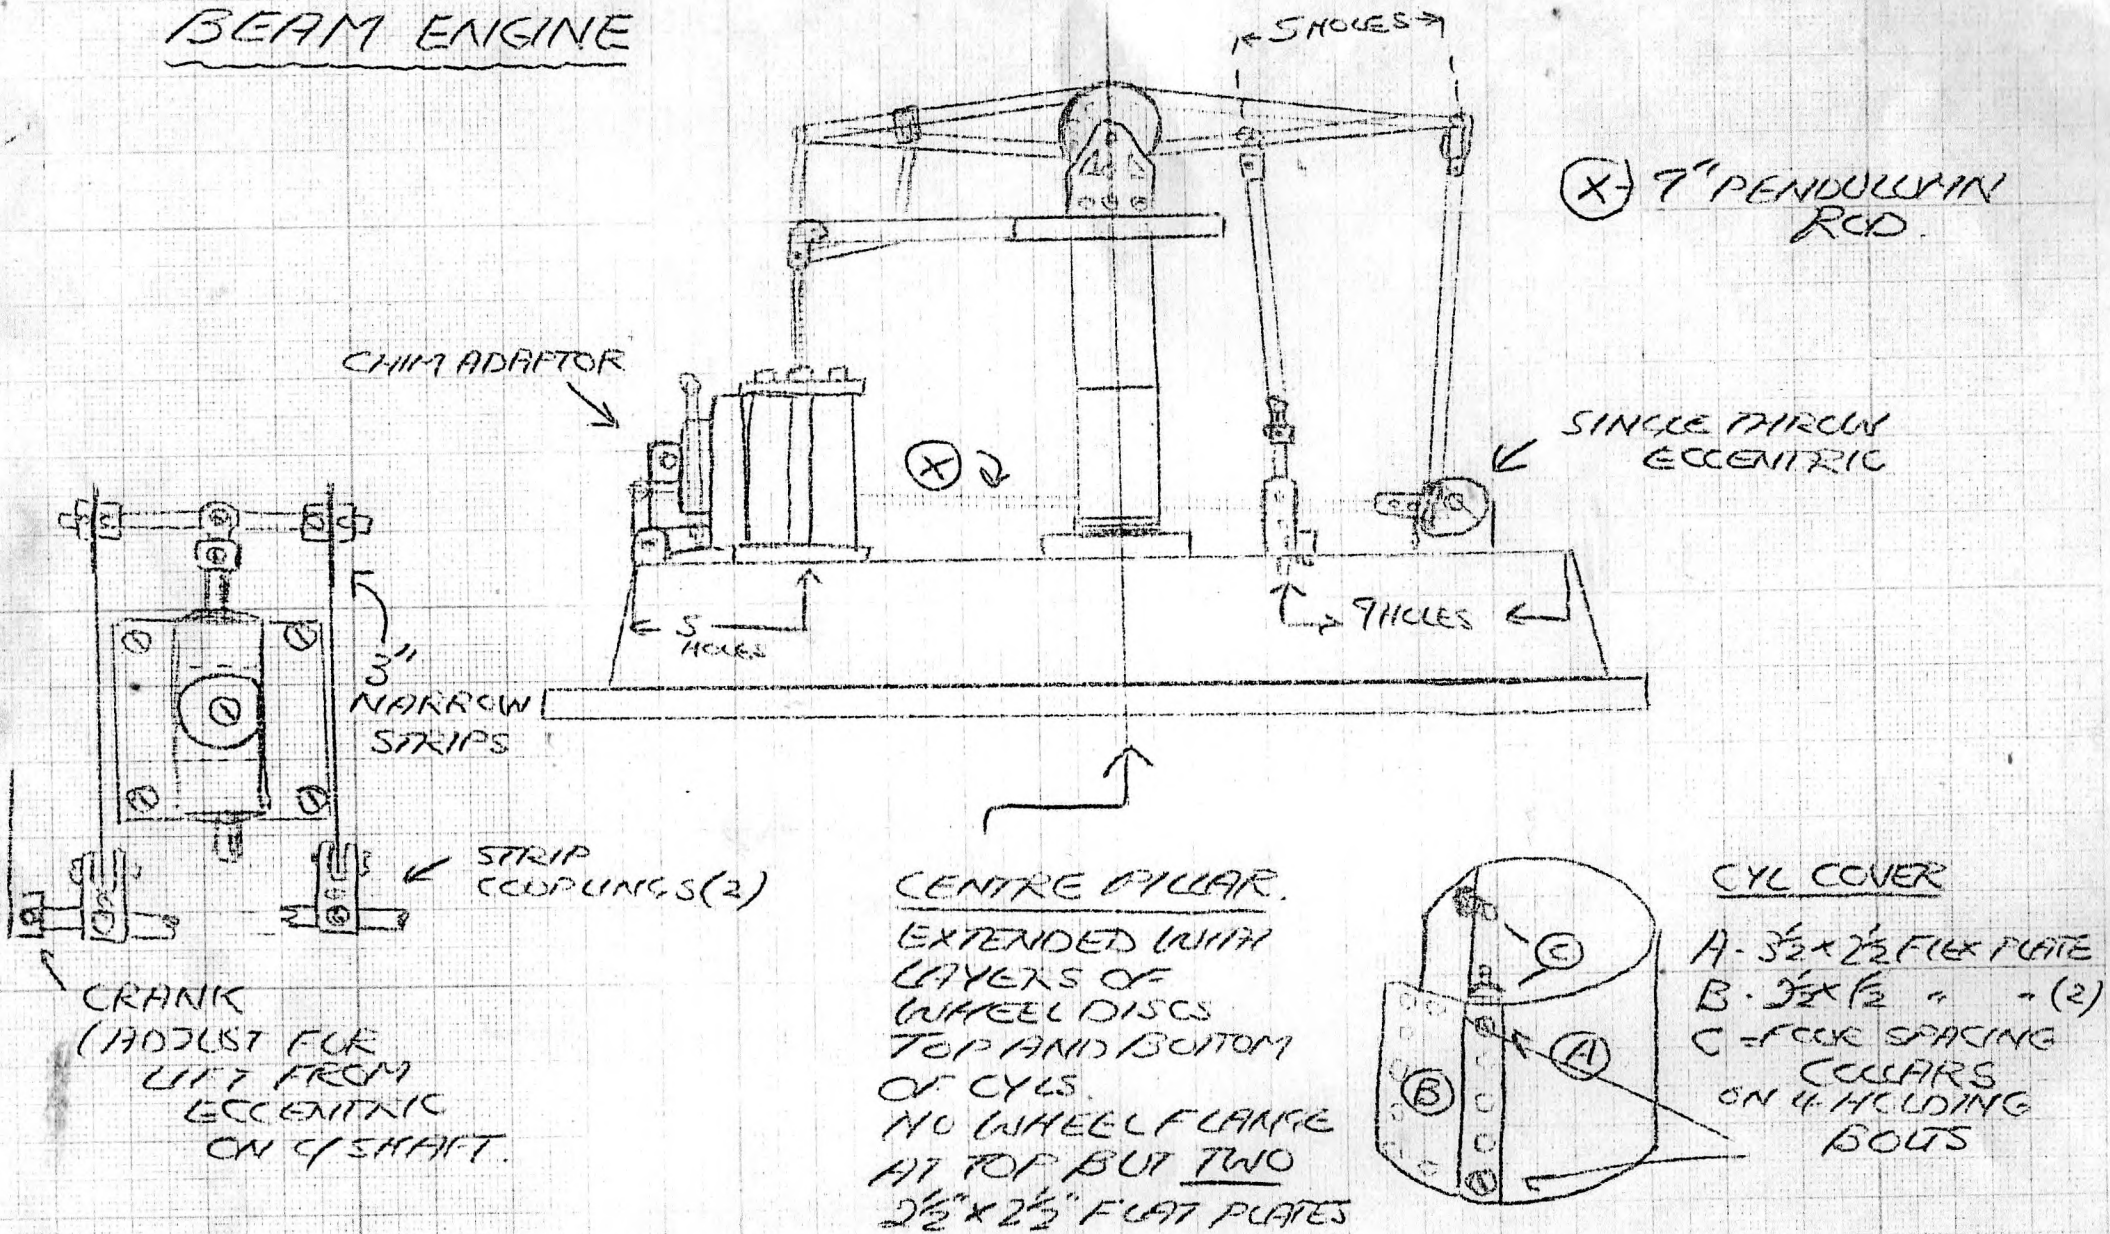 BEAM ENGINE
5 HOLES
X 7" PENDULUMN
ROD.
CHIM ADAPTOR
X
SINGLE THROW
ECCENTRIC
5
HOLES
9 HOLES
3"
NARROW
STRIPS
STRIP
COUPLINGS (2)
CRANK
(ADJUST FOR
LIFT FROM
ECCENTRIC
ON C/SHAFT.
CENTRE PILLAR.
EXTENDED WITH
LAYERS OF
WHEEL DISCS
TOP AND BOTTOM
OF CYLS.
NO WHEEL FLANGE
AT TOP BUT TWO
2½" X 2½" FLAT PLATES
C
A
B
CYL COVER
A - 3½ x 2½ FLEX PLATE
B - 2½ x 1½ " " (2)
C = FOUR SPACING
COLLARS
ON 4 HOLDING
BOLTS